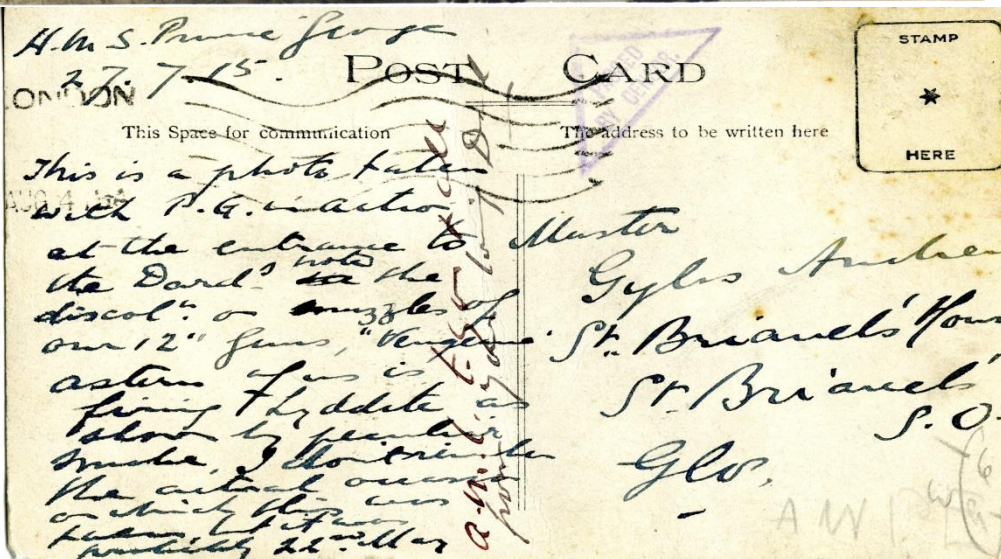 H.M.S. Prince George
27. 7. 15.
POST CARD
STAMP
HERE
LONDON
AUG 4
PASSED
BY CENSOR.
This Space for communication
The address to be written here
This is a photo taken
with P.G. in action
at the entrance to
the Dard.s note the
discoln. on muzzles of
our 12" guns, "Vengeance"
astern of us is
firing Lyddite as
shown by peculiar
smoke, I don't remember
the actual occasion
on which this was
taken, but it was
probably 22nd. May
Master
Gyles
St. Briavels' House
St. Briavels'
S.O.
Glos.